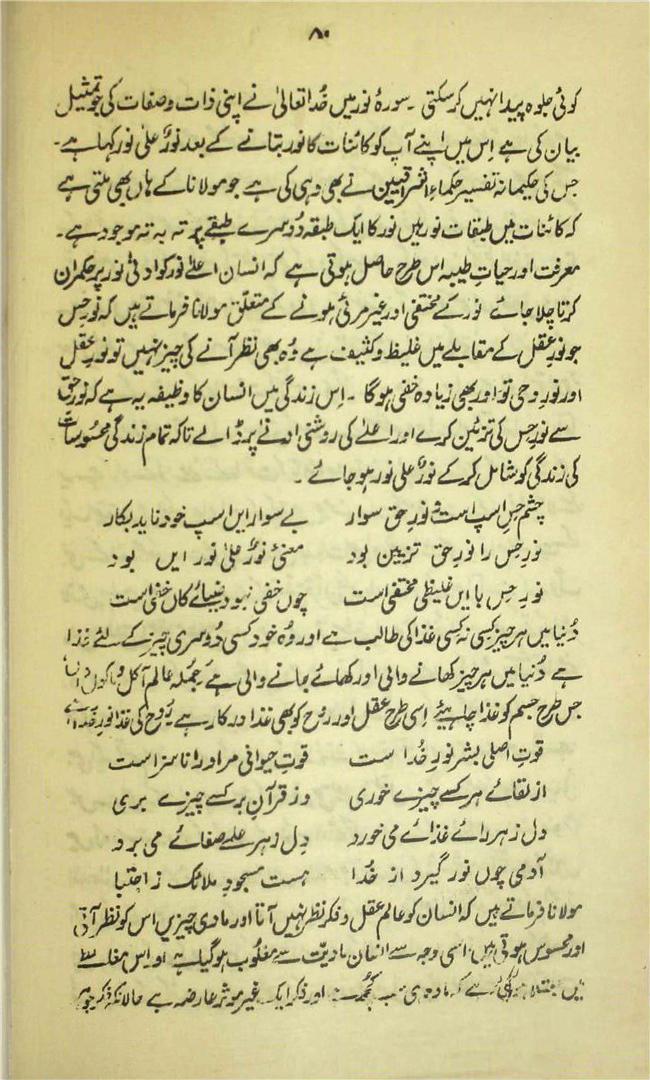 ۸۰
کوئی جلوہ پیدا نہیں کر سکتی ۔ سورۂ نور میں خُدا تعالیٰ نے اپنی ذات و صفات کی جو تمثیل
بیان کی ہے اِس میں اپنے آپ کو کائنات کا نور بتانے کے بعد نورٌ علیٰ نور کہا ہے۔
جس کی حکیمانہ تفسیر حکماءِ اشراقیین نے بھی وہی کی ہے جو مولانا کے ہاں بھی ملتی ہے
کہ کائنات میں طبقات نور ہیں نور کا ایک طبقہ دُوسرے طبقے پر تہ بہ تہ موجود ہے۔
معرفت اور حیاتِ طیبہ اس طرح حاصل ہوتی ہے کہ انسان اعلےٰ نور کو ادنیٰ نور پر حکمران
کرتا چلا جائے نور کے مختفی اور غیر مرئی ہونے کے متعلق مولانا فرماتے ہیں کہ نورِ حِس
جو نورِ عقل کے مقابلے میں غلیظ و کثیف ہے وُہ بھی نظر آنے کی چیز نہیں تو نورِ عقل
اور نورِ وحی تو اور بھی زیادہ خفی ہوگا ۔ اِس زندگی میں انسان کا وظیفہ یہ ہے کہ نورِ حق
سے نورِ حِس کی تزئین کرے اور اعلےٰ کی روشنی ادنےٰ پر ڈالے تاکہ تمام زندگی محسوسات
کی زندگی کو شامل کر کے نورٌ علی نور ہو جائے ۔
چشم حِس اسپ است و نورِ حق سوار بے سوار ایں اسپ خود ناید بکار
نورِ حِس را نورِ حق تزیین بود معنیٔ نورٌ علیٰ نور ایں بود
نورِ حِس با ایں غلیظی مختفی است چوں خفی نبود ضیائے کاں خفی است
دُنیا میں ہر چیز کسی نہ کسی غذا کی طالب ہے اور وُہ خود کسی دُوسری چیز کے لئے غذا
ہے دُنیا میں ہر چیز کھانے والی اور کھائے جانے والی ہے جُملہ عالم آکل و ماکول داں
جس طرح جسم کو غذا چاہیئے اِسی طرح عقل اور رُوح کو بھی غذا درکار ہے رُوح کی غذا نورِ خُدا ہے
قوتِ اصلی بشر نورِ خُدا ست قوتِ حیوانی مر اورا ناسزا است
از لقائے ہر کسے چیزے خوری وز قرآنِ ہر کسے چیزے بری
دل ز ہر رائے غذائے می خورد دِل ز ہر علمے صفائے می برد
آدمی چوں نور گیرد از خُدا ہست مسجودِ ملائک ز اجتبا
مولانا فرماتے ہیں کہ انسان کو عالم عقل و فکر نظر نہیں آتا اور مادی چیزیں اس کو نظر آتی
اور محسوس ہوتی ہیں اسی وجہ سے انسان مادیت سے مغلوب ہو گیا ہے اور اس مغالطے
میں مبتلا ہو گیا ہے کہ مادہ ہی سب کچھ ہے اور فکر ایک غیر موثر عارضہ ہے حالانکہ فکر جوہر